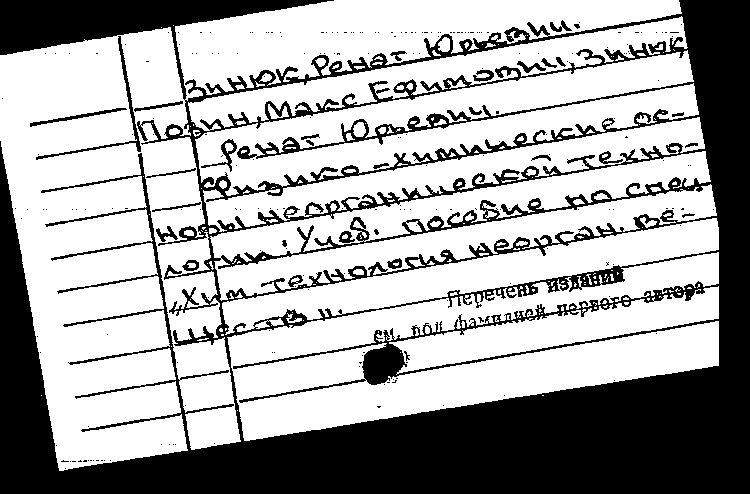 Зинюк, Ренат Юрьевич.
Позин, Макс Ефимович, Зинюк,
Ренат Юрьевич.
Физико-химические ос-
новы неорганической техно-
логии: Учеб. пособие по спец
"Хим. технология неорган. ве-
ществ".
Перечень изданий
см. под фамилией первого автора